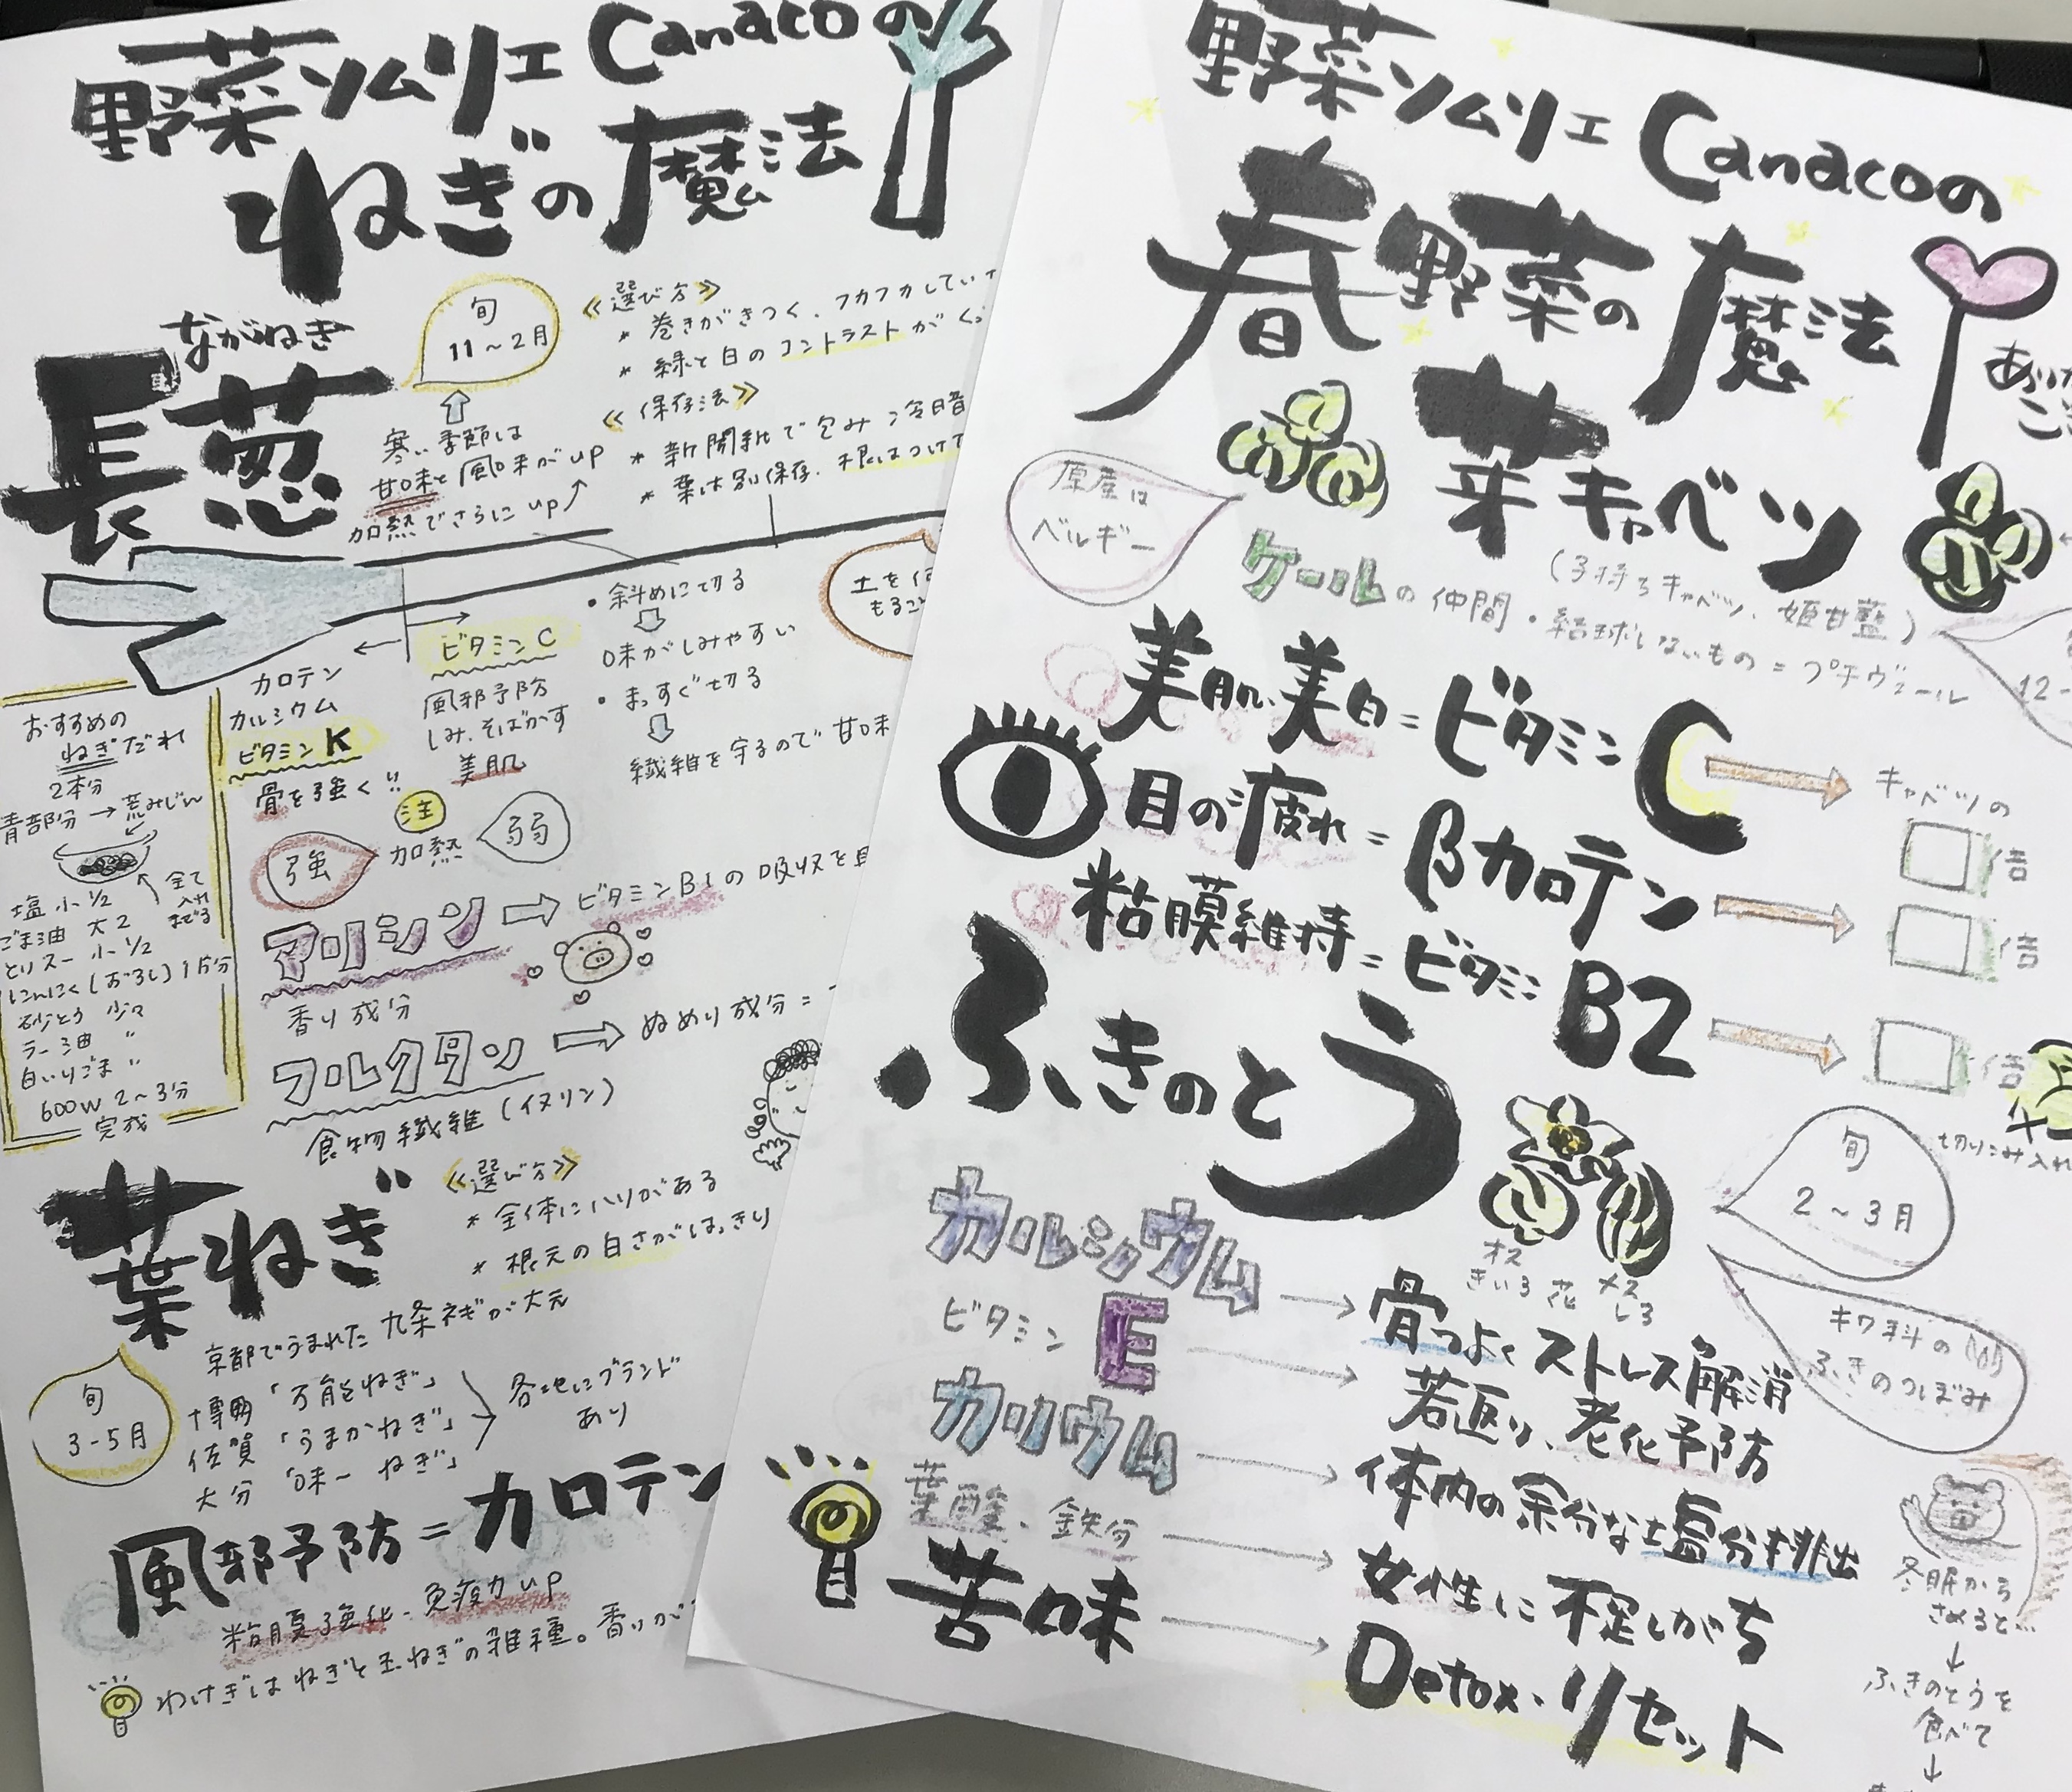 野菜ソムリエ Canacoの
ねぎの魔法
ながねぎ
長葱
旬
11～2月
寒い季節は
甘味と風味がup
加熱でさらにup
《選び方》
* 巻きがきつく、フカフカしてい
* 緑と白のコントラストがく
《保存法》
* 新聞紙で包み冷暗
* 葉は別保存、根はつけて
土を
もるこ
カロテン
カルシウム
ビタミンK
骨を強く!!
ビタミンC
風邪予防
しみ、そばかす
美肌
・斜めに切る
味がしみやすい
・まっすぐ切る
繊維を守るので甘味
おすすめの
ねぎだれ
2本分
青部分→荒みじん
全て
入れ
まぜる
塩 小1/2
ごま油 大2
とりスー 小1/2
にんにく(おろし)1片分
砂とう 少々
ラー油 〃
白いりごま 〃
600W 2～3分
完成
注
強 加熱 弱
アリシン → ビタミンB1の吸収を
香り成分
フルクタン → ぬめり成分=
食物繊維(イヌリン)
葉ねぎ
《選び方》
* 全体にハリがある
* 根元の白さがはっきり
京都でうまれた九条ネギが大元
旬
3-5月
博多「万能ねぎ」
佐賀「うまかねぎ」
大分「味一ねぎ」
各地にブランド
あり
風邪予防=カロテン
粘膜強化・免疫力up
わけぎはねぎと玉ねぎの雑種。香りが
野菜ソムリエ Canacoの
春野菜の魔法
芽キャベツ
(子持ちキャベツ、姫甘藍)
原産は
ベルギー
ケールの仲間・結球しないもの=プチヴェール
12-
美肌、美白=ビタミンC
キャベツの
倍
目の疲れ=βカロテン
倍
粘膜維持=ビタミンB2
倍
切りこみ入れ
ふきのとう
オス
きいろ
花
メス
しろ
旬
2～3月
キク科の
ふきのつぼみ
カルシウム → 骨つよくストレス解消
ビタミンE → 若返り、老化予防
カリウム → 体内の余分な塩分排出
葉酸、鉄分 → 女性に不足しがち
苦味 → Detox・リセット
冬眠から
さめると…
↓
ふきのとうを
食べて
↓